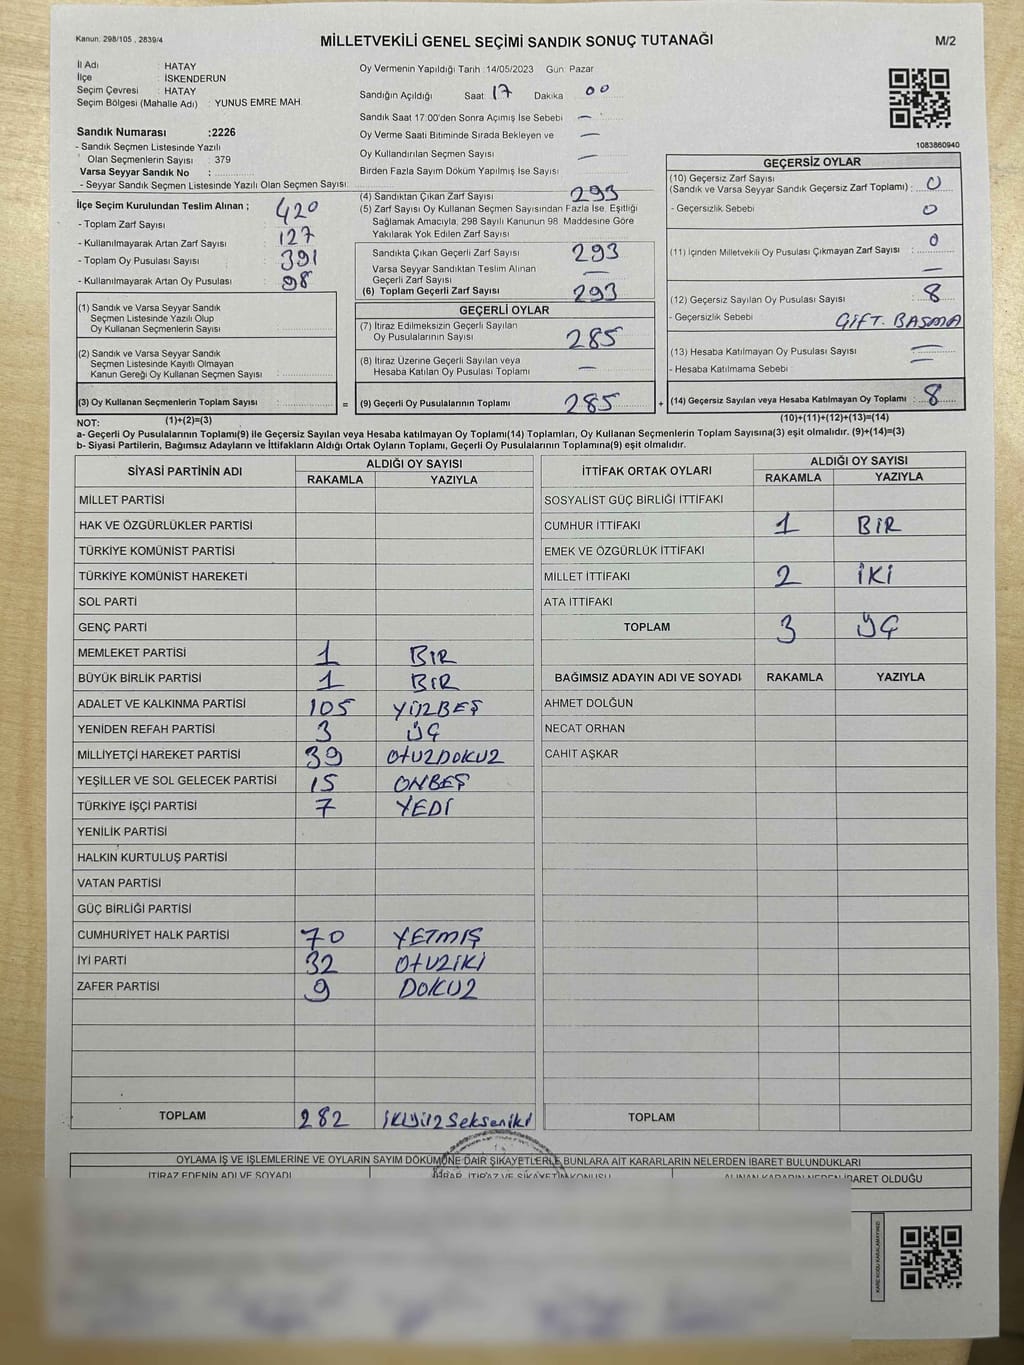 Kanun: 298/105 , 2839/4
MİLLETVEKİLİ GENEL SEÇİMİ SANDIK SONUÇ TUTANAĞI
M/2
İl Adı : HATAY
İlçe : İSKENDERUN
Seçim Çevresi : HATAY
Seçim Bölgesi (Mahalle Adı) : YUNUS EMRE MAH.
Sandık Numarası :2226
- Sandık Seçmen Listesinde Yazılı
Olan Seçmenlerin Sayısı : 379
Varsa Seyyar Sandık No :
- Seyyar Sandık Seçmen Listesinde Yazılı Olan Seçmen Sayısı:
Oy Vermenin Yapıldığı Tarih :14/05/2023 Gün: Pazar
Sandığın Açıldığı Saat: 17 Dakika 00
Sandık Saat 17:00'den Sonra Açımış İse Sebebi —
Oy Verme Saati Bitiminde Sırada Bekleyen ve —
Oy Kullandırılan Seçmen Sayısı —
Birden Fazla Sayım Döküm Yapılmış İse Sayısı
1083860940
İlçe Seçim Kurulundan Teslim Alınan ;
- Toplam Zarf Sayısı : 420
- Kullanılmayarak Artan Zarf Sayısı : 127
- Toplam Oy Pusulası Sayısı : 391
- Kullanılmayarak Artan Oy Pusulası : 98
(1) Sandık ve Varsa Seyyar Sandık
Seçmen Listesinde Yazılı Olup
Oy Kullanan Seçmenlerin Sayısı :
(2) Sandık ve Varsa Seyyar Sandık
Seçmen Listesinde Kayıtlı Olmayan
Kanun Gereği Oy Kullanan Seçmen Sayısı :
(3) Oy Kullanan Seçmenlerin Toplam Sayısı :
(1)+(2)=(3)
(4) Sandıktan Çıkan Zarf Sayısı 293
(5) Zarf Sayısı Oy Kullanan Seçmen Sayısından Fazla İse, Eşitliği
Sağlamak Amacıyla, 298 Sayılı Kanunun 98. Maddesine Göre
Yakılarak Yok Edilen Zarf Sayısı
Sandıkta Çıkan Geçerli Zarf Sayısı 293
Varsa Seyyar Sandıktan Teslim Alınan
Geçerli Zarf Sayısı —
(6) Toplam Geçerli Zarf Sayısı 293
GEÇERLİ OYLAR
(7) İtiraz Edilmeksizin Geçerli Sayılan
Oy Pusulalarının Sayısı 285
(8) İtiraz Üzerine Geçerli Sayılan veya
Hesaba Katılan Oy Pusulası Toplamı —
= (9) Geçerli Oy Pusulalarının Toplamı 285
GEÇERSİZ OYLAR
(10) Geçersiz Zarf Sayısı
(Sandık ve Varsa Seyyar Sandık Geçersiz Zarf Toplamı) : 0
- Geçersizlik Sebebi 0
(11) İçinden Milletvekili Oy Pusulası Çıkmayan Zarf Sayısı : 0
—
(12) Geçersiz Sayılan Oy Pusulası Sayısı : 8
- Geçersizlik Sebebi : ÇİFT. BASMA
(13) Hesaba Katılmayan Oy Pusulası Sayısı : —
- Hesaba Katılmama Sebebi : —
+ (14) Geçersiz Sayılan veya Hesaba Katılmayan Oy Toplamı : 8
(10)+(11)+(12)+(13)=(14)
NOT:
a- Geçerli Oy Pusulalarının Toplamı(9) ile Geçersiz Sayılan veya Hesaba katılmayan Oy Toplamı(14) Toplamları, Oy Kullanan Seçmenlerin Toplam Sayısına(3) eşit olmalıdır. (9)+(14)=(3)
b- Siyasi Partilerin, Bağımsız Adayların ve İttifakların Aldığı Ortak Oyların Toplamı, Geçerli Oy Pusulalarının Toplamına(9) eşit olmalıdır.
SİYASİ PARTİNİN ADI ALDIĞI OY SAYISI
RAKAMLA YAZIYLA
MİLLET PARTİSİ
HAK VE ÖZGÜRLÜKLER PARTİSİ
TÜRKİYE KOMÜNİST PARTİSİ
TÜRKİYE KOMÜNİST HAREKETİ
SOL PARTİ
GENÇ PARTİ
MEMLEKET PARTİSİ 1 BİR
BÜYÜK BİRLİK PARTİSİ 1 BİR
ADALET VE KALKINMA PARTİSİ 105 YÜZBEŞ
YENİDEN REFAH PARTİSİ 3 ÜÇ
MİLLİYETÇİ HAREKET PARTİSİ 39 OTUZDOKUZ
YEŞİLLER VE SOL GELECEK PARTİSİ 15 ONBEŞ
TÜRKİYE İŞÇİ PARTİSİ 7 YEDİ
YENİLİK PARTİSİ
HALKIN KURTULUŞ PARTİSİ
VATAN PARTİSİ
GÜÇ BİRLİĞİ PARTİSİ
CUMHURİYET HALK PARTİSİ 70 YETMİŞ
İYİ PARTİ 32 OTUZİKİ
ZAFER PARTİSİ 9 DOKUZ
TOPLAM 282 İKİYÜZSekseniki
İTTİFAK ORTAK OYLARI ALDIĞI OY SAYISI
RAKAMLA YAZIYLA
SOSYALİST GÜÇ BİRLİĞİ İTTİFAKI
CUMHUR İTTİFAKI 1 BİR
EMEK VE ÖZGÜRLÜK İTTİFAKI
MİLLET İTTİFAKI 2 İKİ
ATA İTTİFAKI
TOPLAM 3 ÜÇ
BAĞIMSIZ ADAYIN ADI VE SOYADI RAKAMLA YAZIYLA
AHMET DOLĞUN
NECAT ORHAN
CAHİT AŞKAR
TOPLAM
OYLAMA İŞ VE İŞLEMLERİNE VE OYLARIN SAYIM DÖKÜMÜNE DAİR ŞİKAYETLERLE BUNLARA AİT KARARLARIN NELERDEN İBARET BULUNDUKLARI
İTİRAZ EDENİN ADI VE SOYADI İHBAR, İTİRAZ VE ŞİKAYETİN KONUSU ALINAN KARARIN NEDEN İBARET OLDUĞU
KARE KODU KARALAMAYINIZ!